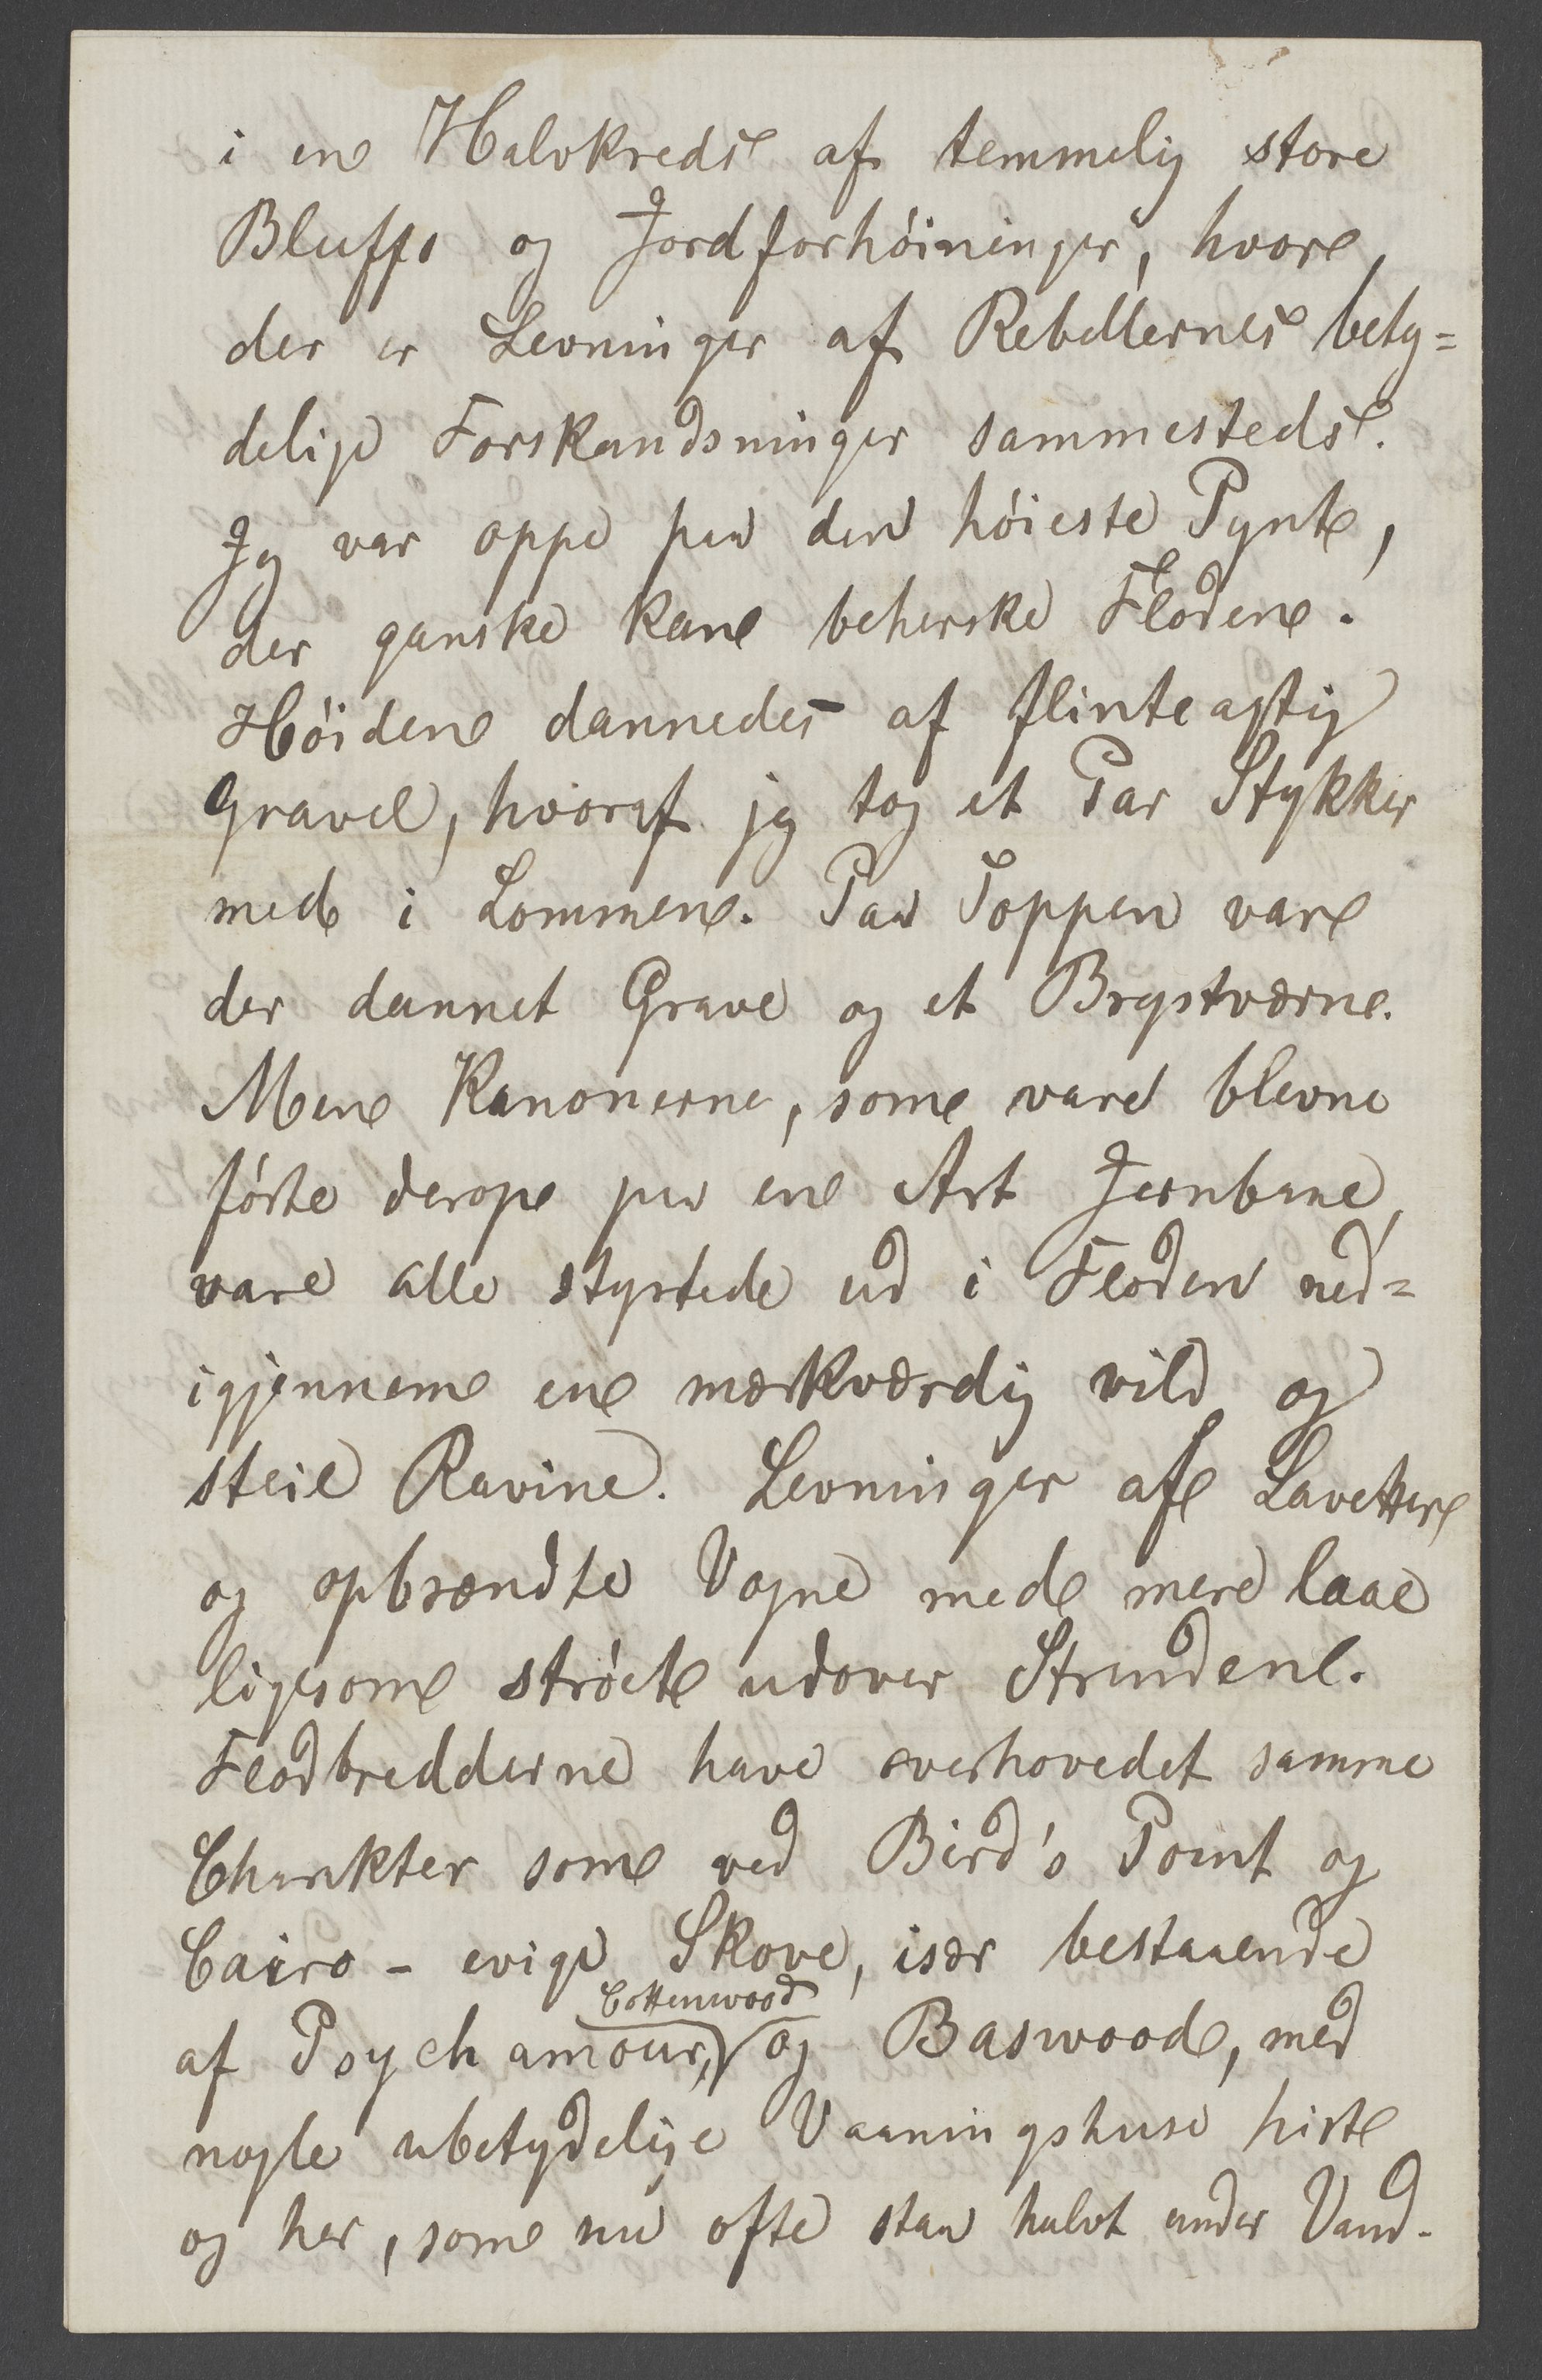 i en Halvkreds af temmelig store
Bluffs og Jordforhöininger, hvor
der er Levninger af Rebellernes bety=
delige Forskandsninger sammesteds.
Jeg var oppe paa den höieste Pynt,
der ganske kan beherske Floden.
Höiden dannedes af flinteagtig
Gravel, hvoraf jeg tog et Par Stykker
med i Lommen. Paa Toppen var
der dannet Grave og et Brystværn.
Men Kanonerne, som vare blevne
förte derop paa en Art Jernbane,
vare alle styrtede ud i Floden ned=
igjennem en mærkværdig vild og
steil Ravine. Levninger af Lavetter
og opbrændte Vogne med mere laae
ligesom ströet udover Stranden.
Flodbredderne have overhovedet samme
Charakter som ved Bird's Point og
Cairo - evige Skove, især bestaaende
af Psychamour, Cottenwood og Baswood, med
nogle ubetydelige Vaaningshuse hist
og her, som nu ofte staa halvt under Vand.